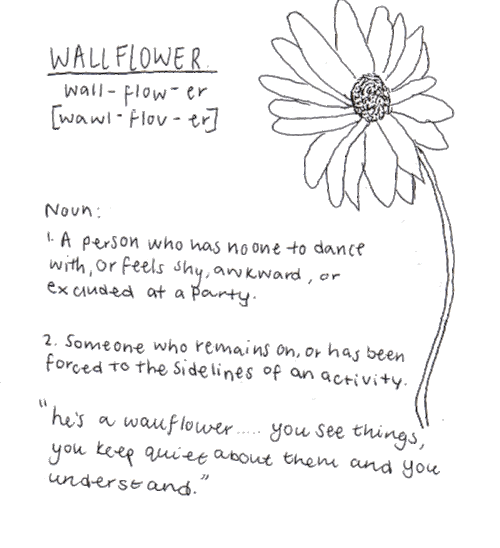 WALLFLOWER.
wall-flow-er
[wawl-flou-er]
Noun:
1. A person who has no one to dance
with, or feels shy, awkward, or
excluded at a party.
2. Someone who remains on, or has been
forced to the sidelines of an activity.
"he's a wallflower..... you see things,
you keep quiet about them and you
understand."